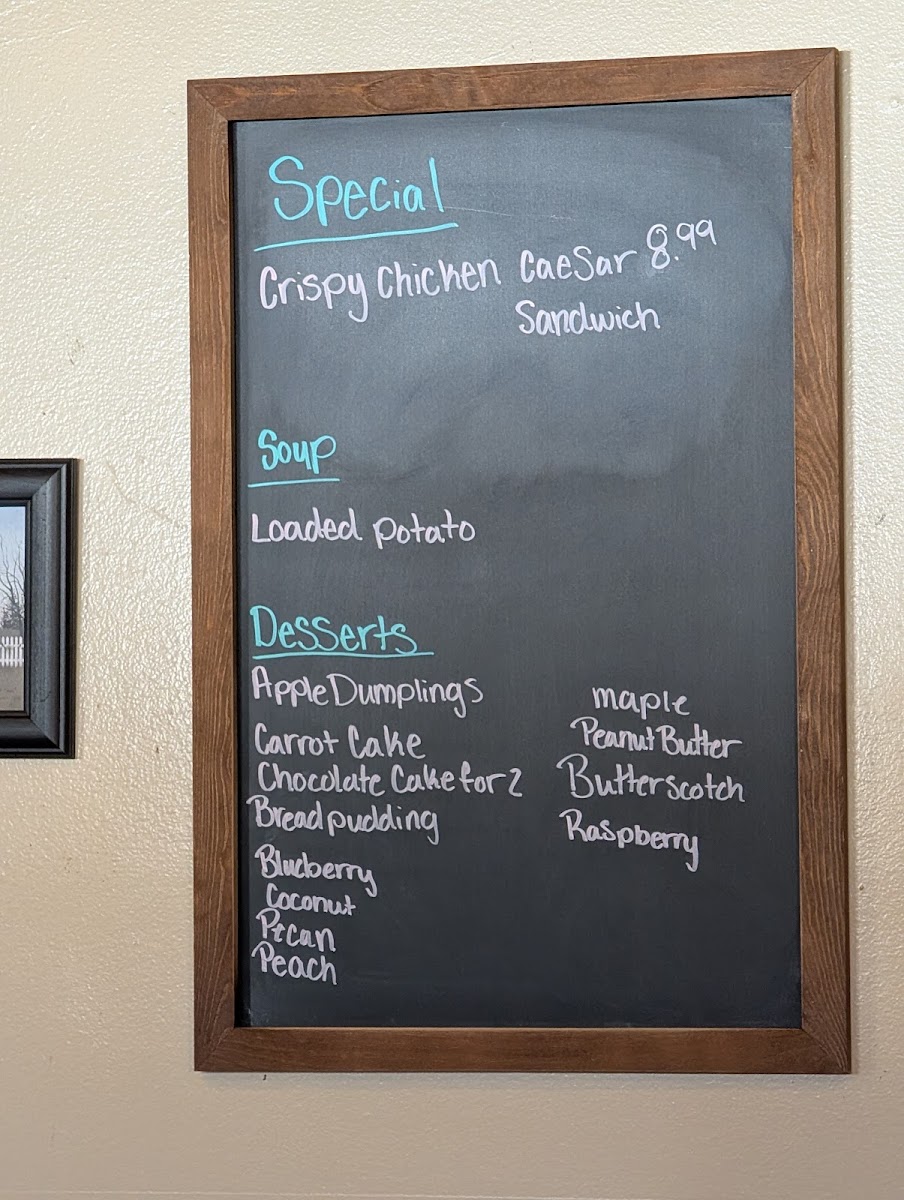 Special
Crispy Chicken Caesar 8.99
Sandwich
Soup
Loaded potato
Desserts
Apple Dumplings
Carrot Cake
Chocolate Cake for 2
Bread pudding
Blueberry
Coconut
Pecan
Peach
maple
Peanut Butter
Butterscotch
Raspberry